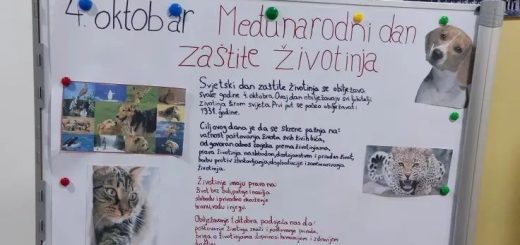 4. oktobar Međunarodni dan
zaštite životinja
Svjetski dan zaštite životinja se obilježava
svake godine 4. oktobra. Ovaj dan obilježavaju svi ljubitelji
životinja širom svijeta. Prvi put se počeo obilježavati
1931. godine.
Cilj ovog dana je da se skrene pažnja na:
važnost poštovanja života svih živih bića,
odgovoran odnos čovjeka prema životinjama,
prava životinja na slobodan, dostojanstven i prirodan život,
borbu protiv zlostavljanja, eksploatacije i zanemarivanja
životinja.
Životinje imaju pravo na:
život bez boli, patnje i nasilja
slobodu i prirodno okruženje
hranu, vodu i njegu.
Obilježavanje 4. oktobra podsjeća nas da:
poštovanje životinja znači i poštovanje prirode,
briga o životinjama doprinosi humanijem i zdravijem